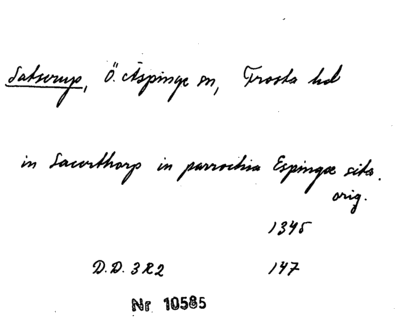 Satserup, Ö. Äspinge sn, Frosta hd
in Sacerthorp in parrochia Espingæ sita.
orig.
1345
D.D. 3R2 147
Nr 10585